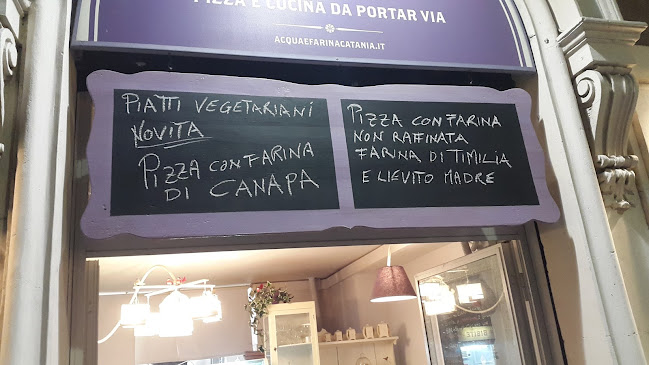 PIZZA E CUCINA DA PORTAR VIA
ACQUAEFARINACATANIA.IT
PIATTI VEGETARIANI
NOVITA
PIZZA CON FARINA
DI CANAPA
PIZZA CON FARINA
NON RAFFINATA
FARINA DI TIMILIA
E LIEVITO MADRE
BIBITE